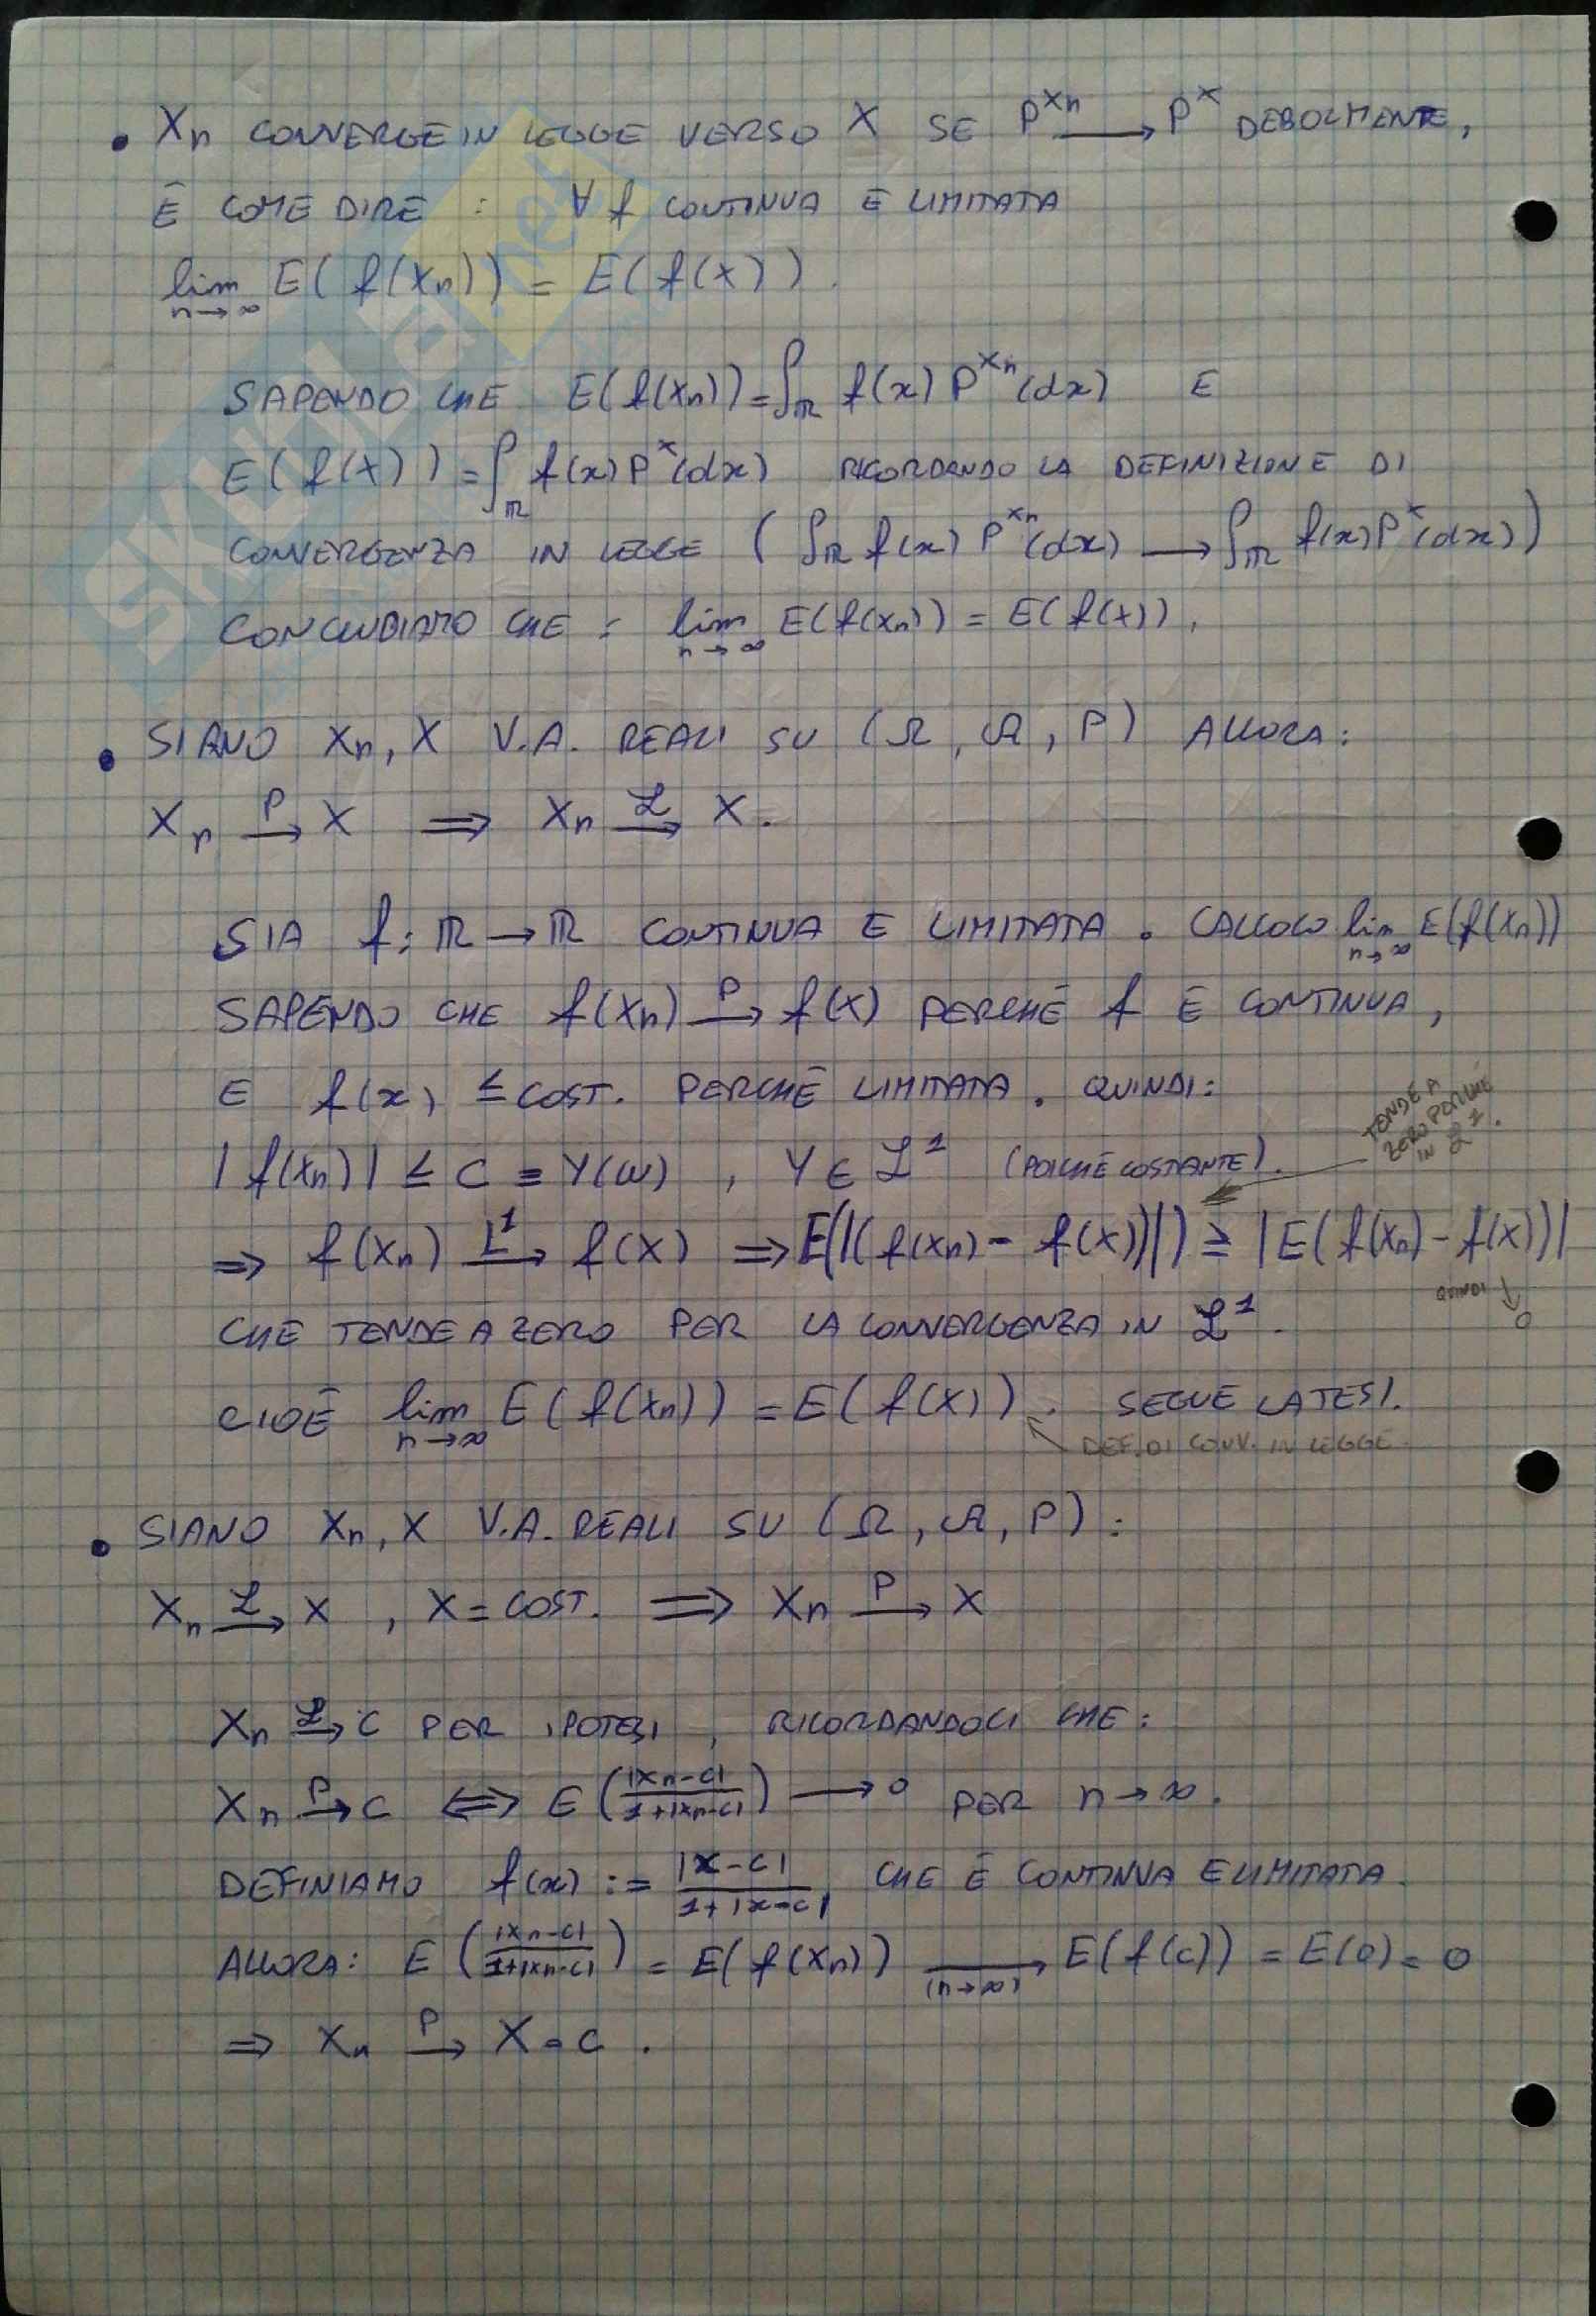 • Xn CONVERGE IN LEGGE VERSO X SE P^Xn → P^X DEBOLMENTE,
È COME DIRE : ∀ f CONTINUA E LIMITATA
lim n→∞ E(f(Xn)) = E(f(X)).
SAPENDO CHE E(f(Xn)) = ∫ℝ f(x) P^Xn(dx) E
E(f(X)) = ∫ℝ f(x) P^X(dx) RICORDANDO LA DEFINIZIONE DI
CONVERGENZA IN LEGGE (∫ℝ f(x) P^Xn(dx) → ∫ℝ f(x) P^X(dx))
CONCLUDIAMO CHE : lim n→∞ E(f(Xn)) = E(f(X)).
• SIANO Xn, X V.A. REALI SU (Ω, 𝒜, P) ALLORA:
Xn →^P X ⟹ Xn →^ℒ X.
SIA f: ℝ → ℝ CONTINUA E LIMITATA. CALCOLO lim n→∞ E(f(Xn))
SAPENDO CHE f(Xn) →^P f(X) PERCHÉ f È CONTINUA,
E f(x) ≤ COST. PERCHÉ LIMITATA. QUINDI:
TENDE A
ZERO POICHÉ
IN ℒ¹.
|f(Xn)| ≤ C ≡ Y(ω), Y ∈ ℒ¹ (POICHÉ COSTANTE).
⟹ f(Xn) →^L¹ f(X) ⟹ E(|(f(Xn) - f(X))|) ≥ |E(f(Xn) - f(X))|
QUINDI ↓ 0
CHE TENDE A ZERO PER LA CONVERGENZA IN ℒ¹.
CIOÈ lim n→∞ E(f(Xn)) = E(f(X)). SEGUE LA TESI.
DEF. DI CONV. IN LEGGE
• SIANO Xn, X V.A. REALI SU (Ω, 𝒜, P):
Xn →^ℒ X, X = COST. ⟹ Xn →^P X
Xn →^ℒ C PER IPOTESI, RICORDANDOCI CHE:
Xn →^P C ⟺ E(|Xn-C|/(1+|Xn-C|)) → 0 PER n → ∞.
DEFINIAMO f(x) := |x-C|/(1+|x-C|) CHE È CONTINUA E LIMITATA.
ALLORA: E(|Xn-C|/(1+|Xn-C|)) = E(f(Xn)) →(n→∞) E(f(C)) = E(0) = 0
⟹ Xn →^P X = C.